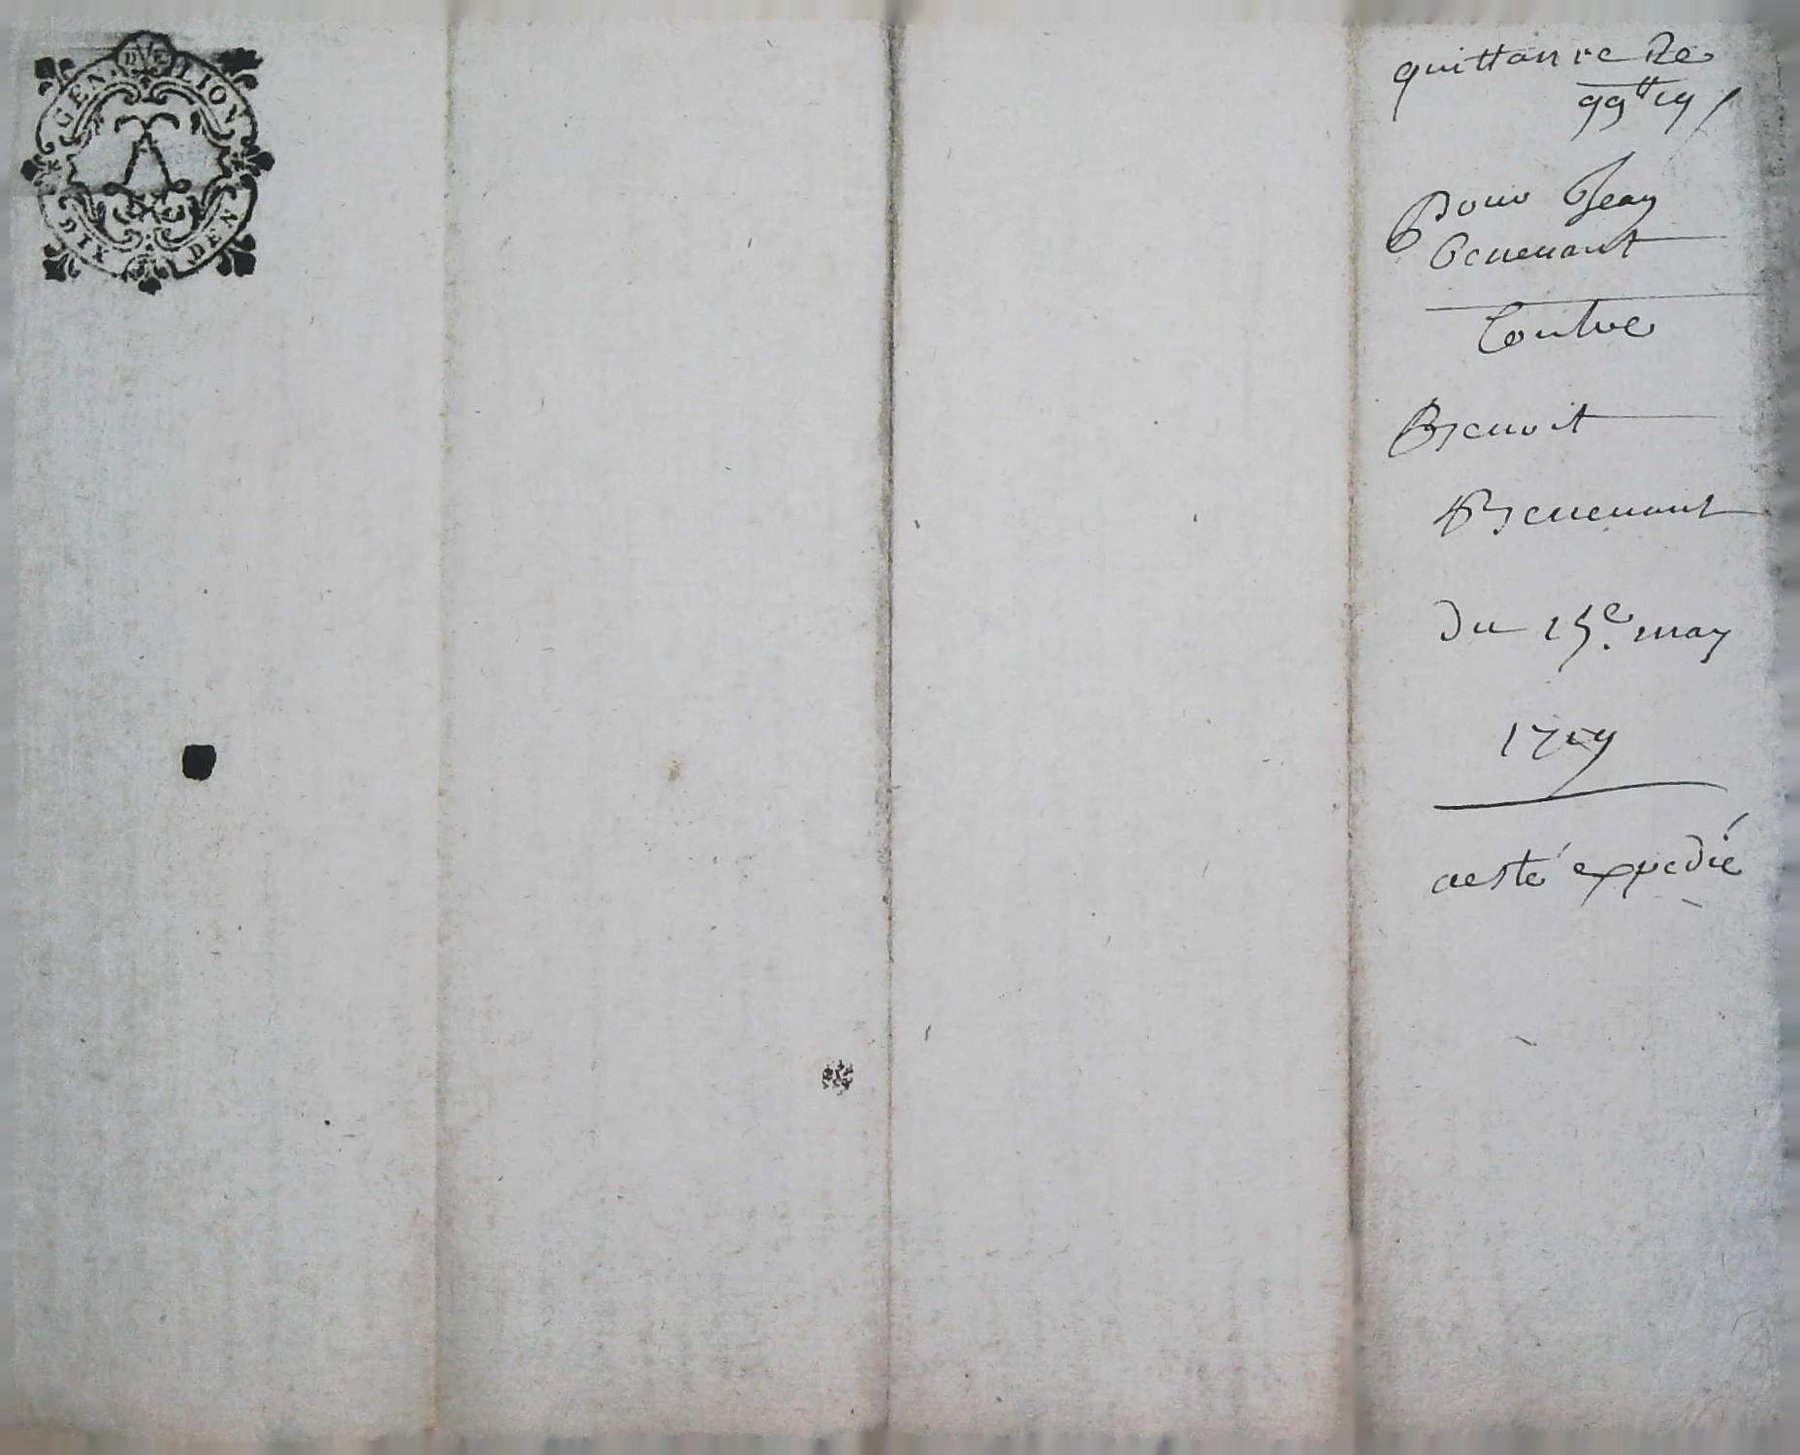 GEN. DE LION
DIX DEN
quittance de
99ᵗᵗ 19 ſ
pour Jean
benenant
Contre
Benoit
Benenant
du 15e may
1719
a esté expedié